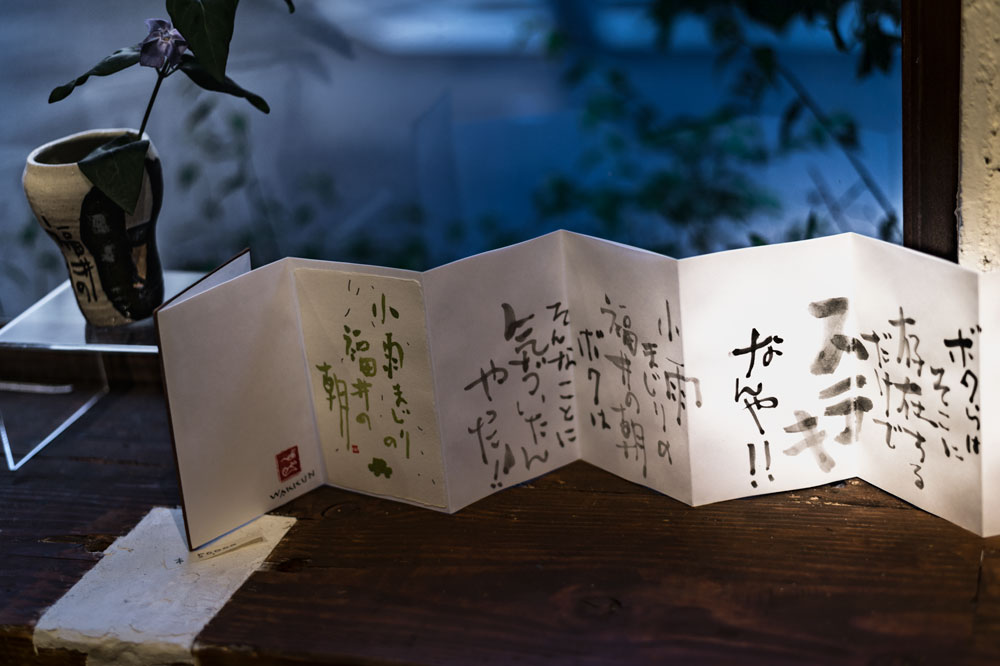 ボクらは
そこに
存在する
だけで
ステキ
なんや!!
小雨
まじりの
福井の朝
ボクは
そんなことに
気づいたん
やった!!
小雨まじり
福井の
朝
WAKKUN
福井の